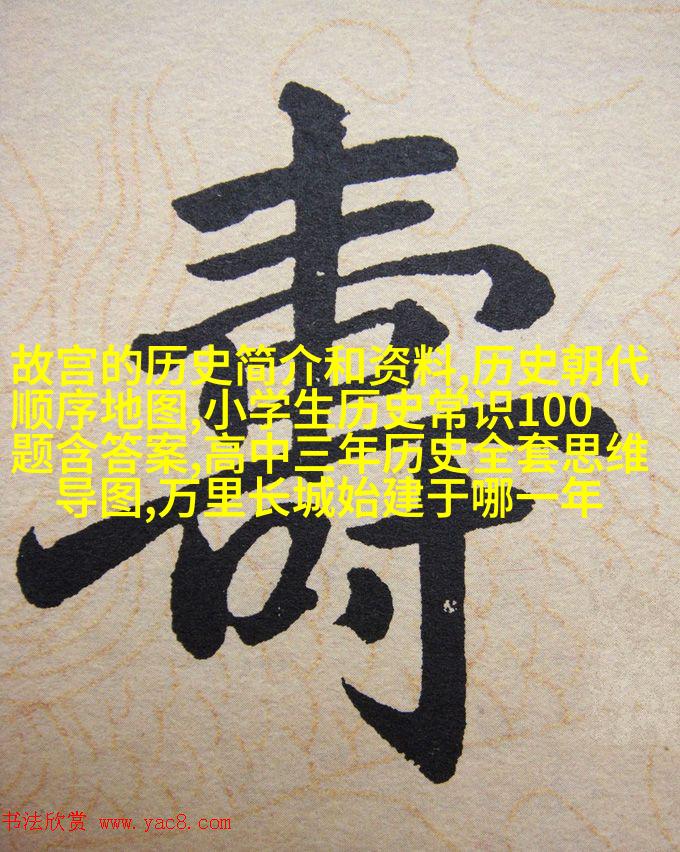 壽
故宫的历史简介和资料,历史朝代
顺序地图,小学生历史常识100
题含答案,高中三年历史全套思维
导图,万里长城始建于哪一年
书法欣赏 www.yac8.com